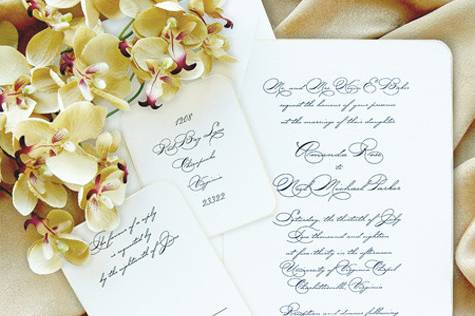 Mr. and Mrs. E. Baker
request the honour of your presence
at the marriage of their daughter
Amanda Rose
to
Michael Parker
Saturday, the thirtieth of July
Two thousand and eighteen
at five thirty in the afternoon
University of Virginia Chapel
Charlottesville, Virginia
Reception and dinner following
1208
Red Bay
Chesapeake
Virginia
23322
The favour of a reply
is requested by
by the eighteenth of June